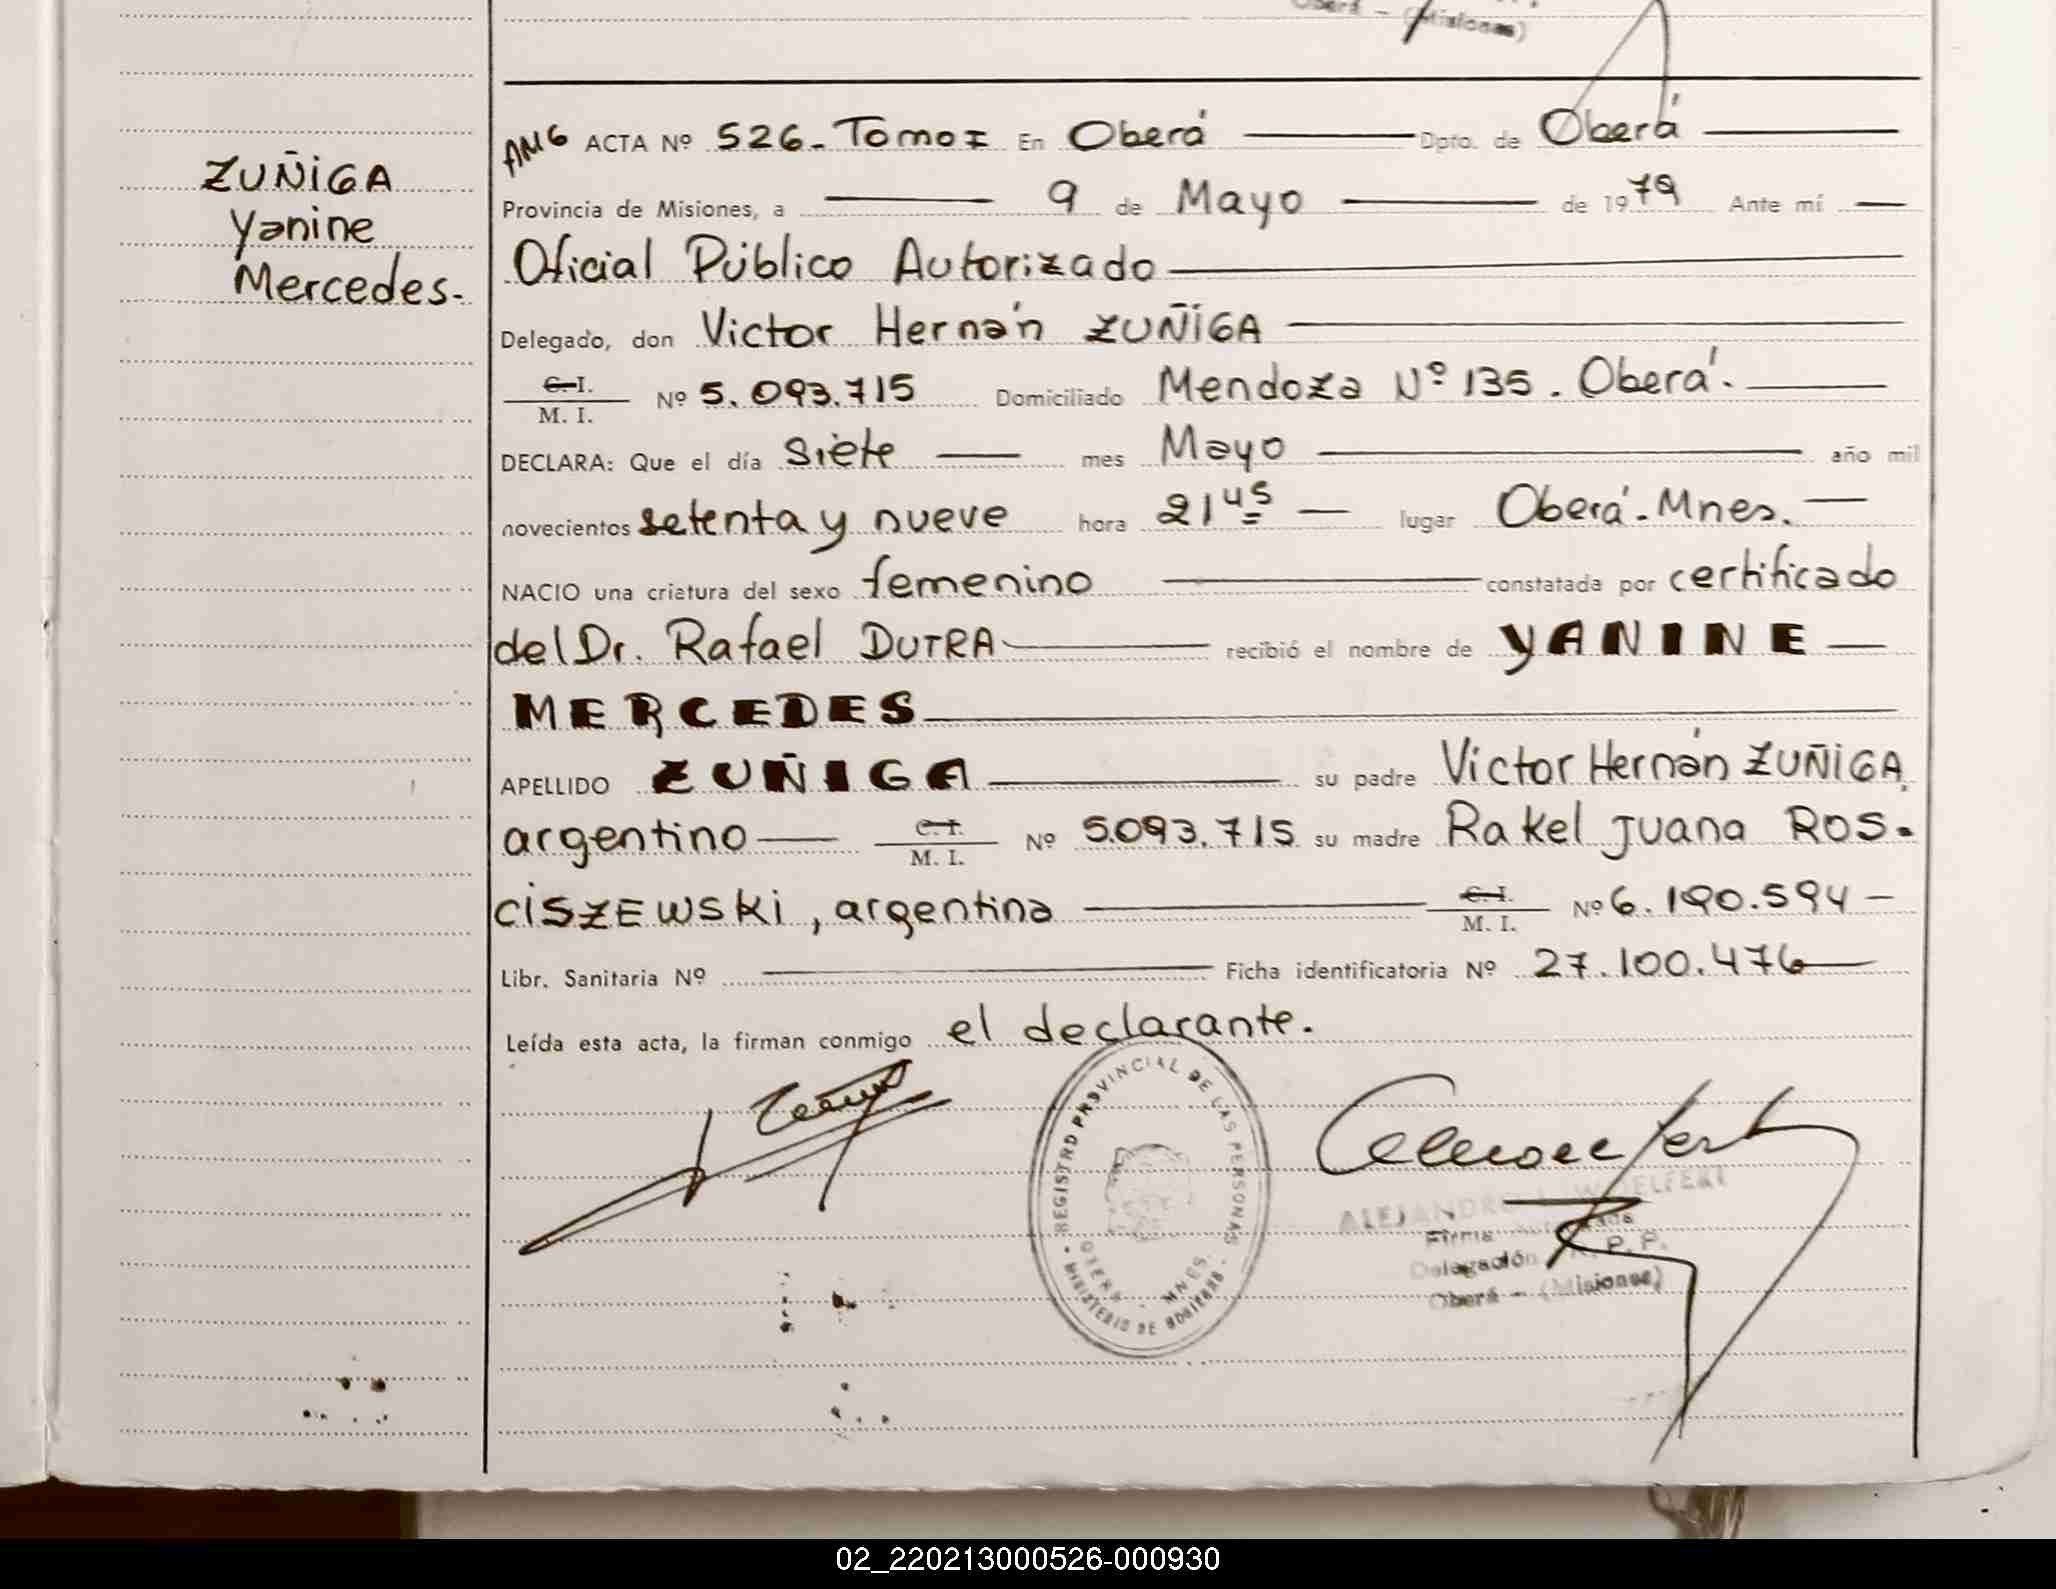 Oberá - (Misiones)
ZUÑiGA
Yanine
Mercedes.
AMG ACTA Nº 526. Tomo I En Oberá Dpto. de Oberá
Provincia de Misiones, a 9 de Mayo de 1979 Ante mí
Oficial Público Autorizado
Delegado, don Victor Hernán ZUÑiGA
C.I.
M. I. Nº 5.093.715 Domiciliado Mendoza Nº 135. Oberá.
DECLARA: Que el día siete mes Mayo año mil
novecientos setenta y nueve hora 21 45 lugar Oberá. Mnes.
NACIO una criatura del sexo femenino constatada por certificado
del Dr. Rafael DUTRA recibió el nombre de YANINE
MERCEDES
APELLIDO ZUÑIGA su padre Victor Hernán ZUÑiGA,
argentino C. I. M. I. Nº 5.093.715 su madre Rakel Juana ROS-
CiSZEWSKi, argentina C.I. M. I. Nº 6.190.594
Libr. Sanitaria Nº Ficha identificatoria Nº 27.100.476
Leída esta acta, la firman conmigo el declarante.
REGISTRO PROVINCIAL DE LAS PERSONAS
OBERA - MNES.
MINISTERIO DE GOBIERNO
ALEJANDRO WOELFERT
Firma Autorizada
Delegación R. P. P.
Oberá - (Misiones)
02_220213000526-000930